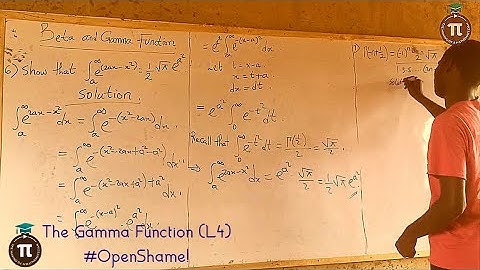 Beta and Gamma Function
6) Show that ∫ₐ^∞ e^(2ax-x²) dx = 1/2 √π e^(a²)
Solution.
∫ₐ^∞ e^(2ax-x²) dx = ∫ₐ^∞ e^-(x²-2ax) dx.
= ∫ₐ^∞ e^-(x²-2ax+a²-a²) dx.
= ∫ₐ^∞ e^-(x²-2ax+a²)+a² dx.
= ∫ₐ^∞ e^-(x-a)² e^(a²) dx.
= e^(a²) ∫ₐ^∞ e^-(x-a)² dx
Let t = x-a
x = t+a
dx = dt.
= e^(a²) ∫₀^∞ e^(-t²) dt.
Recall that ∫₀^∞ e^(-t²) dt = Γ(1/2)/2 = √π/2.
⇒ ∫ₐ^∞ e^(2ax-x²) dx = e^(a²) √π/2 = 1/2 √π e^(a²)
1.3.5...
The Gamma Function (L4)
#OpenShamel